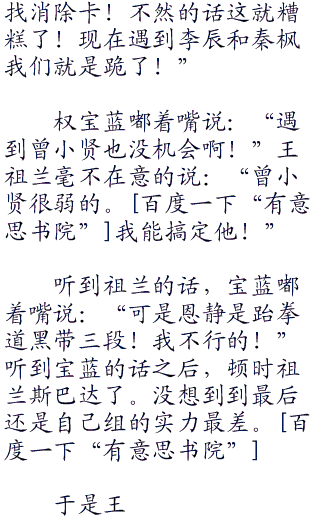 找消除卡！不然的话这就糟
糕了！现在遇到李辰和秦枫
我们就是跪了！”
权宝蓝嘟着嘴说：“遇
到曾小贤也没机会啊！”王
祖兰毫不在意的说：“曾小
贤很弱的。[百度一下“有意
思书院”]我能搞定他！”
听到祖兰的话，宝蓝嘟
着嘴说：“可是恩静是跆拳
道黑带三段！我不行的！”
听到宝蓝的话之后，顿时祖
兰斯巴达了。没想到到最后
还是自己组的实力最差。[百
度一下“有意思书院”]
于是王